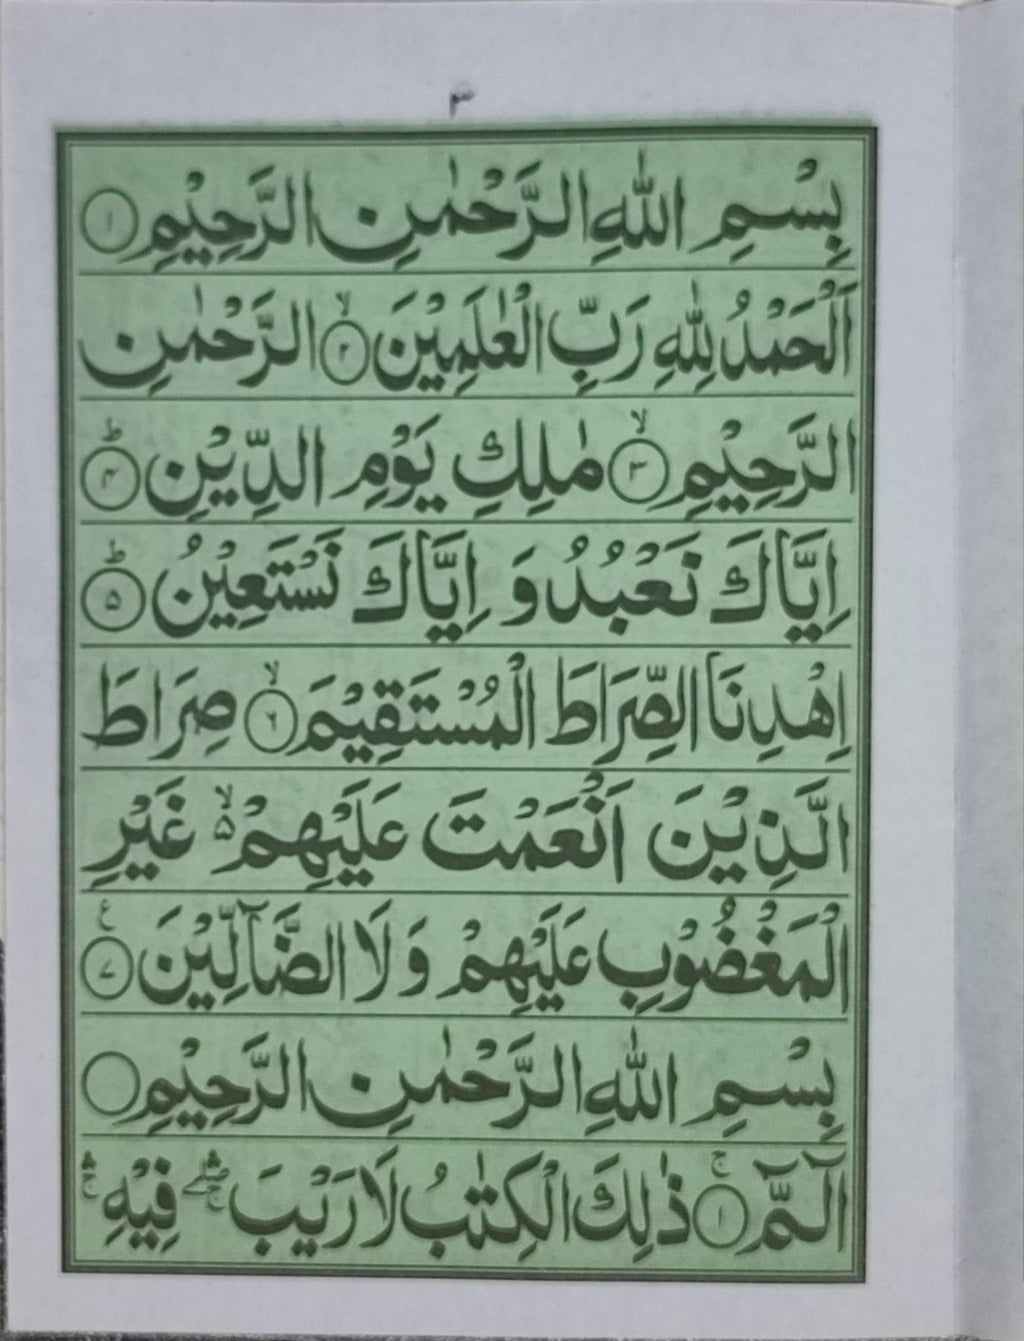 ٣
بِسْمِ اللّٰهِ الرَّحْمٰنِ الرَّحِيْمِ ﴿١﴾
اَلْحَمْدُ لِلّٰهِ رَبِّ الْعٰلَمِيْنَ ۙ﴿٢﴾ الرَّحْمٰنِ
الرَّحِيْمِ ۙ﴿٣﴾ مٰلِكِ يَوْمِ الدِّيْنِ ؕ﴿۴﴾
اِيَّاكَ نَعْبُدُ وَ اِيَّاكَ نَسْتَعِيْنُ ؕ﴿۵﴾
اِهْدِنَا الصِّرَاطَ الْمُسْتَقِيْمَ ۙ﴿٦﴾ صِرَاطَ
الَّذِيْنَ اَنْعَمْتَ عَلَيْهِمْ ۙ۵ غَيْرِ
الْمَغْضُوْبِ عَلَيْهِمْ وَ لَا الضَّآلِّيْنَ ﴿٧﴾ ع
بِسْمِ اللّٰهِ الرَّحْمٰنِ الرَّحِيْمِ ۝
الٓمّٓ ۚ﴿١﴾ ذٰلِكَ الْكِتٰبُ لَا رَيْبَ ۛۖۚ فِيْهِ ۛۚ